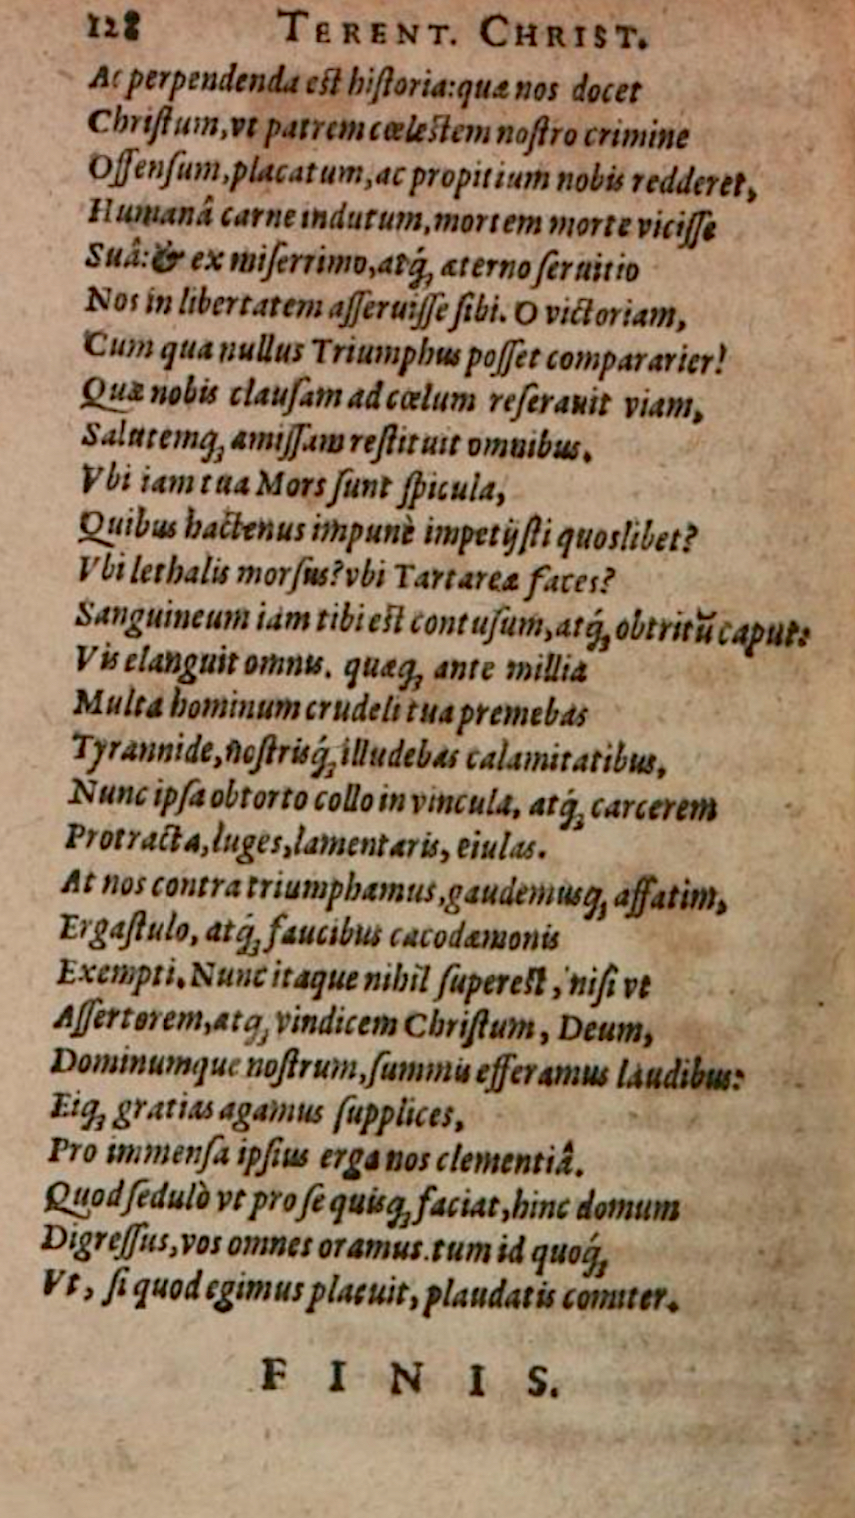 128 TERENT. CHRIST.
Ac perpendenda est hiſtoria: quæ nos docet
Chriſtum, vt patrem cœlestem noſtro crimine
Offenſum, placatum, ac propitium nobis redderet,
Humanâ carne indutum, mortem morte viciſſe
Suâ: & ex miſerrimo, atq́; æterno ſeruitio
Nos in libertatem aſſeruiſſe ſibi. O victoriam,
Cum qua nullus Triumphus poſſet compararier!
Quæ nobis clauſam ad cœlum reſerauit viam,
Salutemq; amiſſam reſtituit omnibus.
Vbi iam tua Mors ſunt ſpicula,
Quibus hactenus impunè impetijſti quoslibet?
Vbi lethalis morſus? vbi Tartareæ faces?
Sanguineum iam tibi est contuſum, atq́; obtritũ caput:
Vis elanguit omnis. quæq; ante millia
Multa hominum crudeli tua premebas
Tyrannide, noſtrisq́; illudebas calamitatibus,
Nunc ipſa obtorto collo in vincula, atq́; carcerem
Protracta, luges, lamentaris, eiulas.
At nos contra triumphamus, gaudemusq; affatim,
Ergaſtulo, atq́; faucibus cacodæmonis
Exempti. Nunc itaque nihil ſuperest, niſi vt
Aſſertorem, atq; vindicem Chriſtum, Deum,
Dominumque noſtrum, ſummis efferamus laudibus:
Eiq; gratias agamus ſupplices,
Pro immenſa ipſius erga nos clementiâ.
Quod ſedulò vt pro ſe quisq; faciat, hinc domum
Digreſſus, vos omnes oramus. tum id quoq́;
Vt, ſi quod egimus placuit, plaudatis comiter.
FINIS.